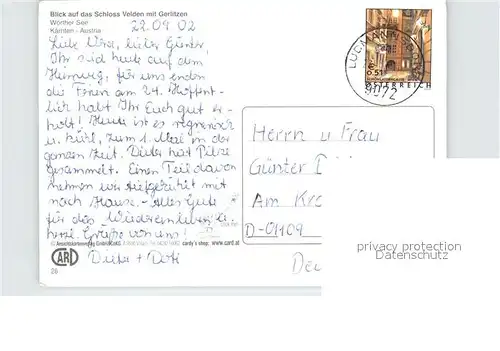 Blick auf das Schloss Velden mit Gerlitzen
Wörther See
Kärnten - Austria
22.09.02
Liebe Ursa, lieber Günter,
Ihr seid heute auf dem
Heimweg, für uns enden
die Ferien am 24. Hoffent-
lich habt Ihr Euch gut er-
holt! Heute ist es regnerisch
u. kühl, zum 1. Mal in der
ganzen Zeit. Dieter hat Pilze
gesammelt. Einen Teil davon
nehmen wir aufgerührt mit
nach Hause. - Alles Gute
für das Wiedereinleben u.
herzl. Grüße von uns!
Dieter + Dorti
© Ansichtskartenverlag
cardy's shop: www.card.at
CARD
26
0,51
ÖSTERREICH
9872
Herrn u Frau
Günter
Am
D-01109
privacy protection
Datenschutz